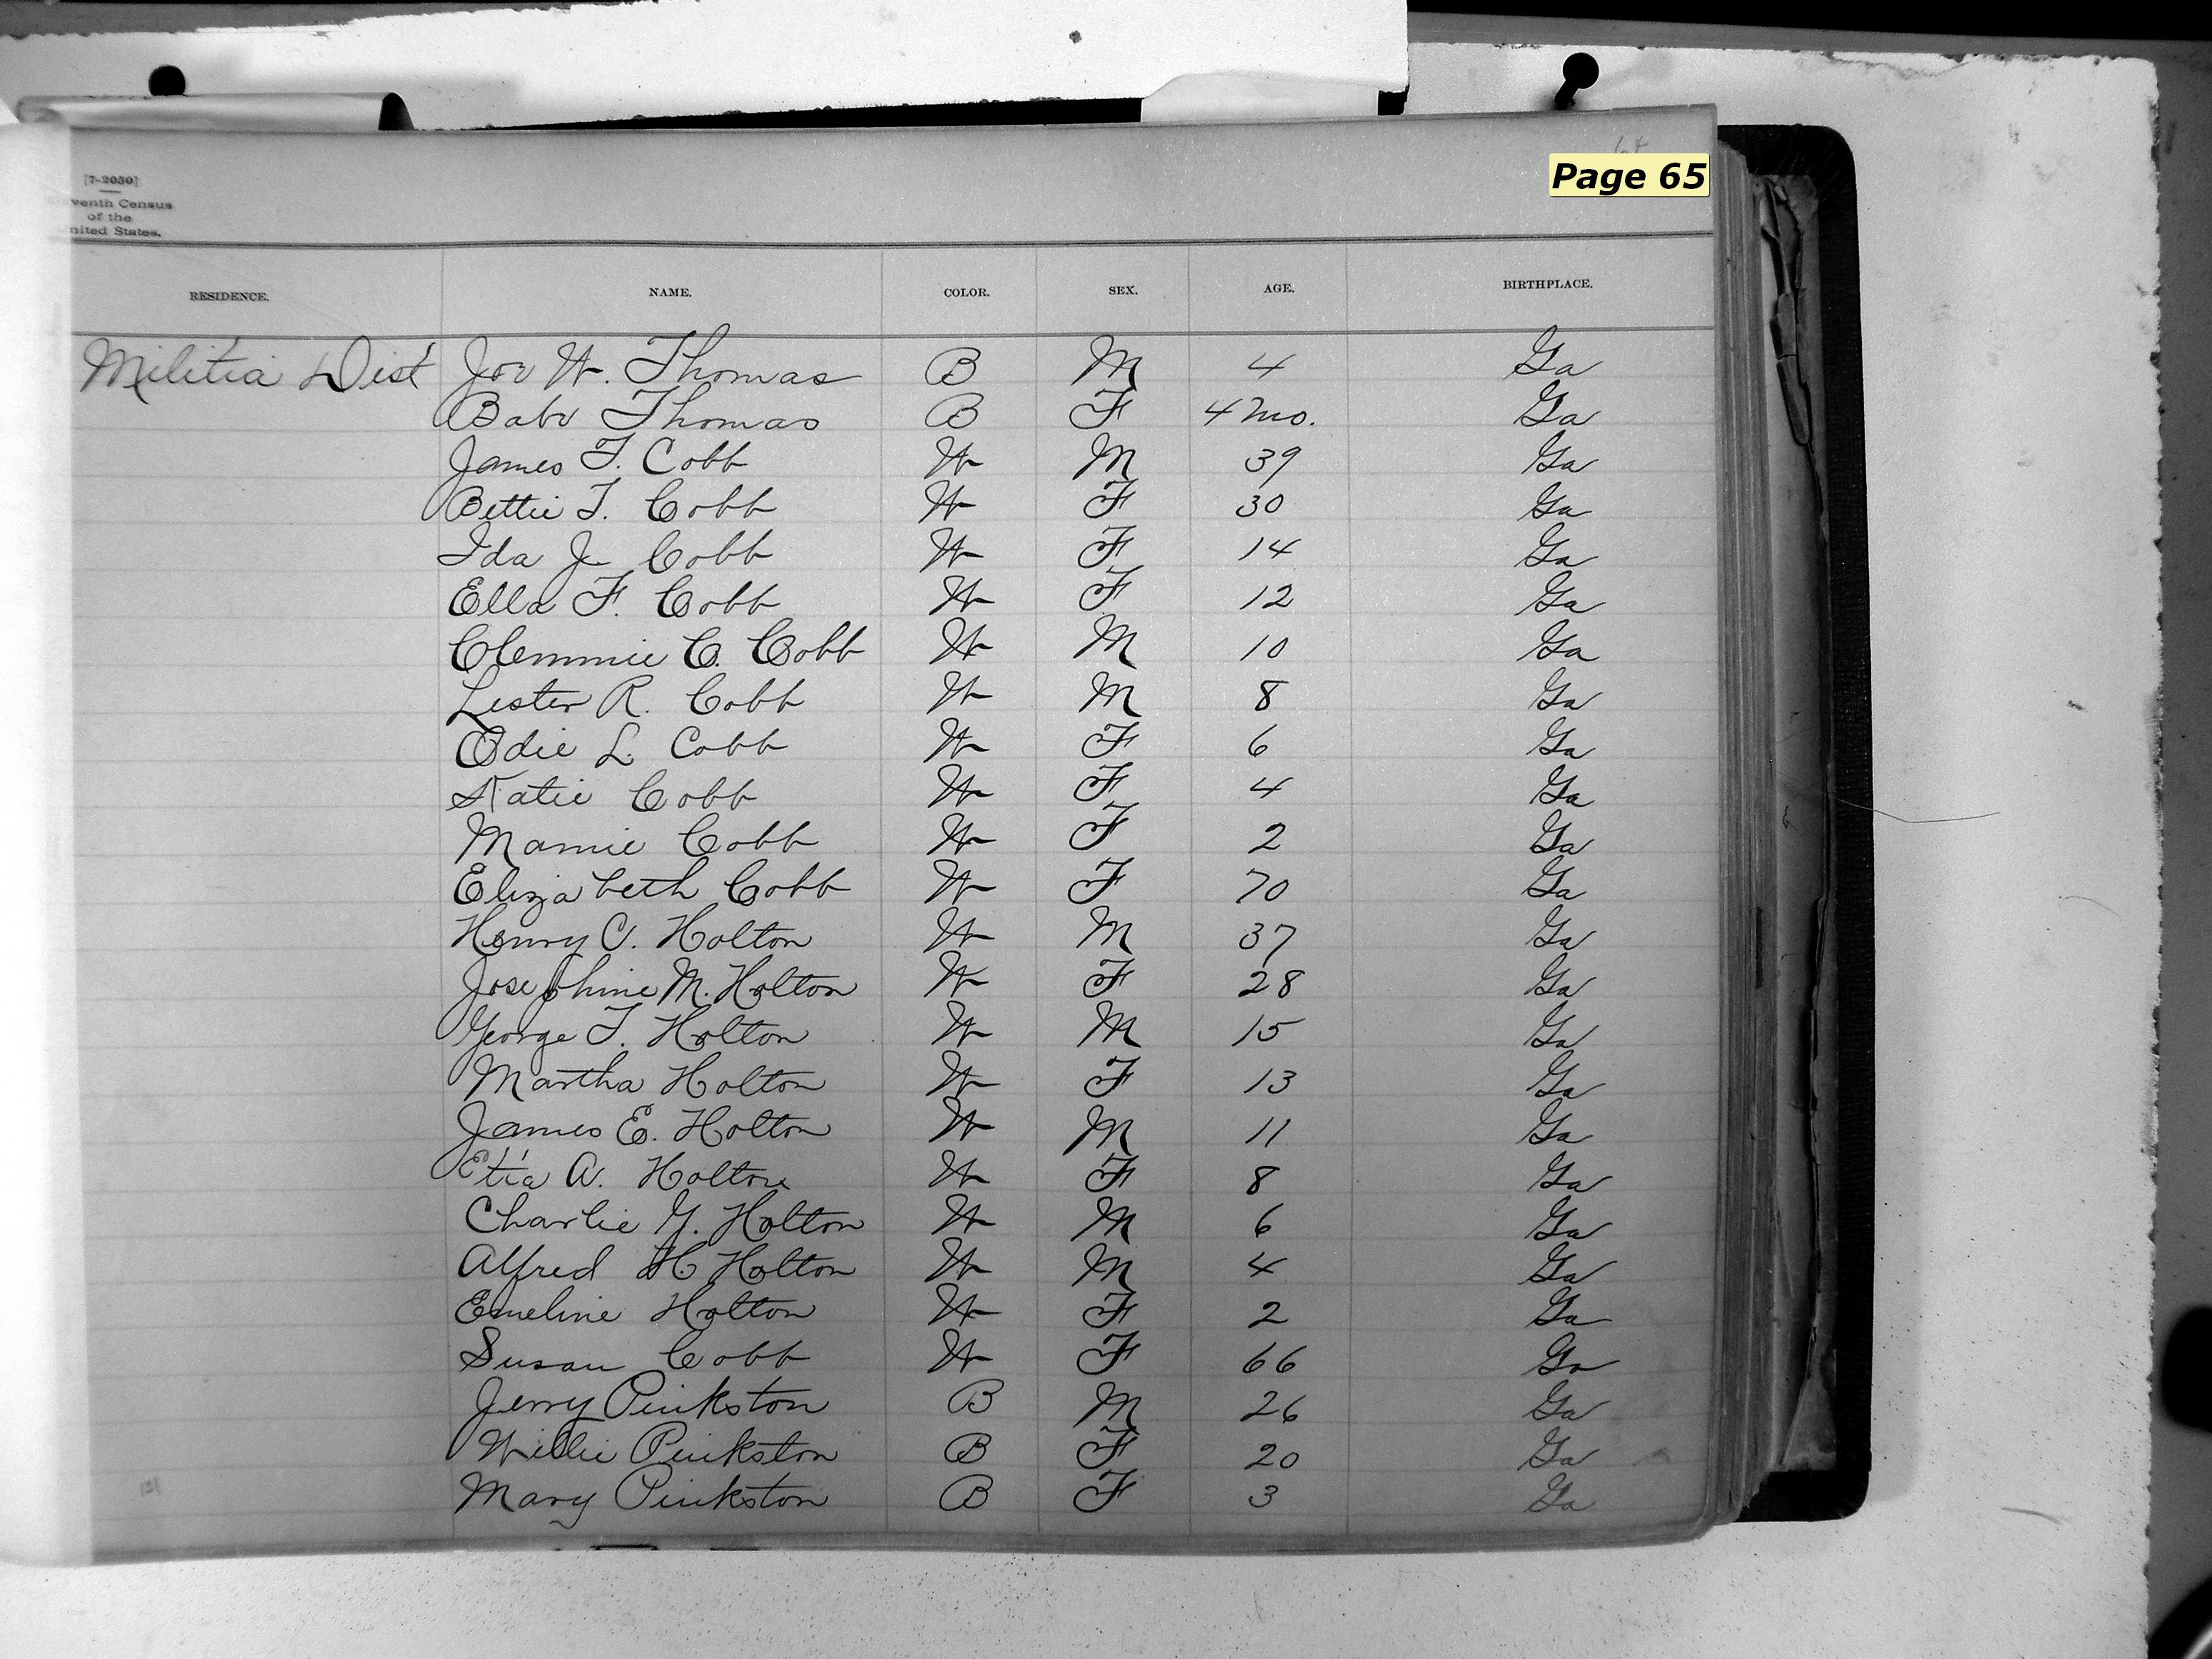 64
Page 65
[7-2050]
venth Census
of the
nited States.
RESIDENCE. NAME. COLOR. SEX. AGE. BIRTHPLACE.
Militia Dist Joe W. Thomas B M 4 Ga
Babe Thomas B F 4 mo. Ga
James T. Cobb W M 39 Ga
Bettie T. Cobb W F 30 Ga
Ida J. Cobb W F 14 Ga
Ella F. Cobb W F 12 Ga
Clemmie C. Cobb W M 10 Ga
Lester R. Cobb W M 8 Ga
Odie L. Cobb W F 6 Ga
Katie Cobb W F 4 Ga
Mamie Cobb W F 2 Ga
Elizabeth Cobb W F 70 Ga
Henry C. Holton W M 37 Ga
Josephine M. Holton W F 28 Ga
George T. Holton W M 15 Ga
Martha Holton W F 13 Ga
James E. Holton W M 11 Ga
Etta A. Holton W F 8 Ga
Charlie Y. Holton W M 6 Ga
Alfred H Holton W M 4 Ga
Emeline Holton W F 2 Ga
Susan Cobb W F 66 Ga
Jerry Pinkston B M 26 Ga
Willie Pinkston B F 20 Ga
Mary Pinkston B F 3 Ga